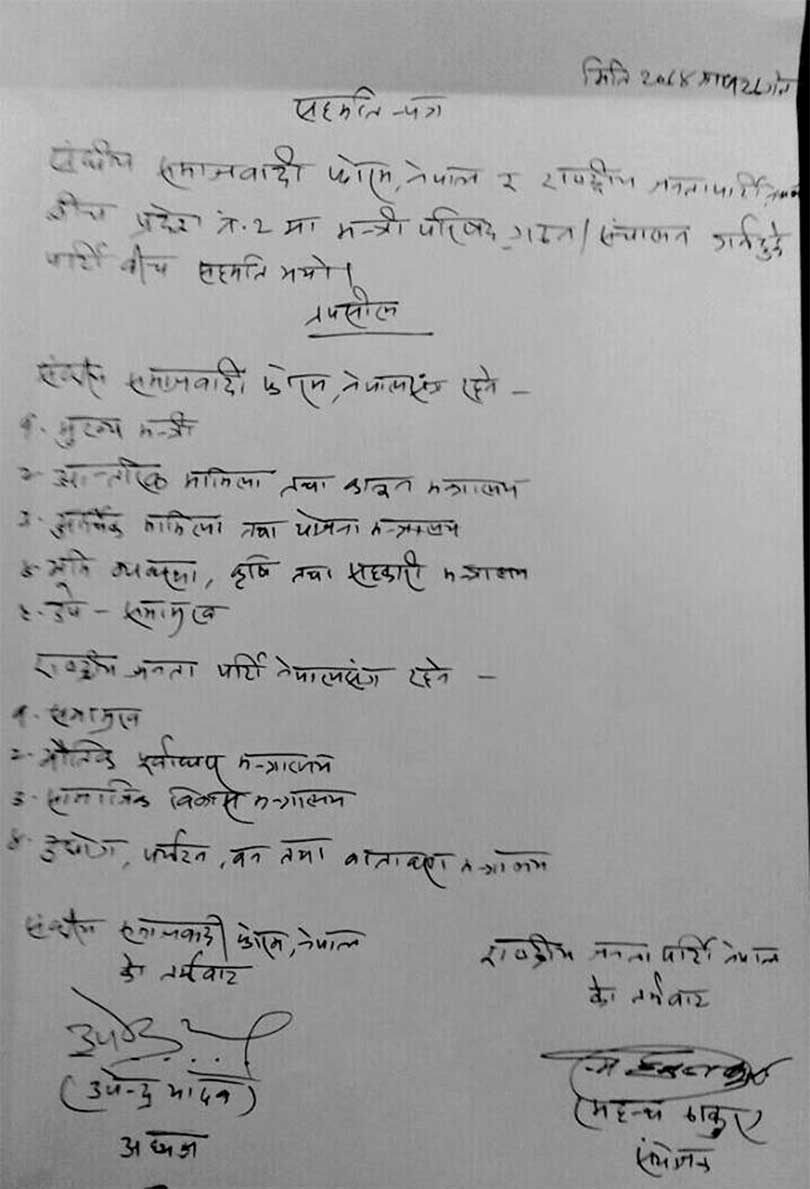 मिति २०७४ माघ २८ गते
सहमति-पत्र
संघीय समाजवादी फोरम, नेपाल र राष्ट्रीय जनता पार्टि नेपाल
बीच प्रदेश नं. २ मा मन्त्री परिषद् गठन/संचालन गर्न दुई
पार्टी बीच सहमति भयो।
तपसील
संघीय समाजवादी फोरम, नेपालसंग रहने –
१. मुख्य मन्त्री
२. आन्तरिक मामिला तथा कानून मन्त्रालय
३. आर्थिक मामिला तथा योजना मन्त्रालय
४. भूमि व्यवस्था, कृषि तथा सहकारी मन्त्रालय
५. उप – सभामुख
राष्ट्रीय जनता पार्टि नेपालसंग रहने –
१. सभामुख
२. भौतिक पूर्वाधार मन्त्रालय
३. सामाजिक विकास मन्त्रालय
४. उद्योग, पर्यटन, वन तथा वातावरण मन्त्रालय
संघीय समाजवादी फोरम, नेपाल
को तर्फबाट
(उपेन्द्र यादव)
अध्यक्ष
राष्ट्रीय जनता पार्टि नेपाल
को तर्फबाट
(महन्थ ठाकुर
संयोजक